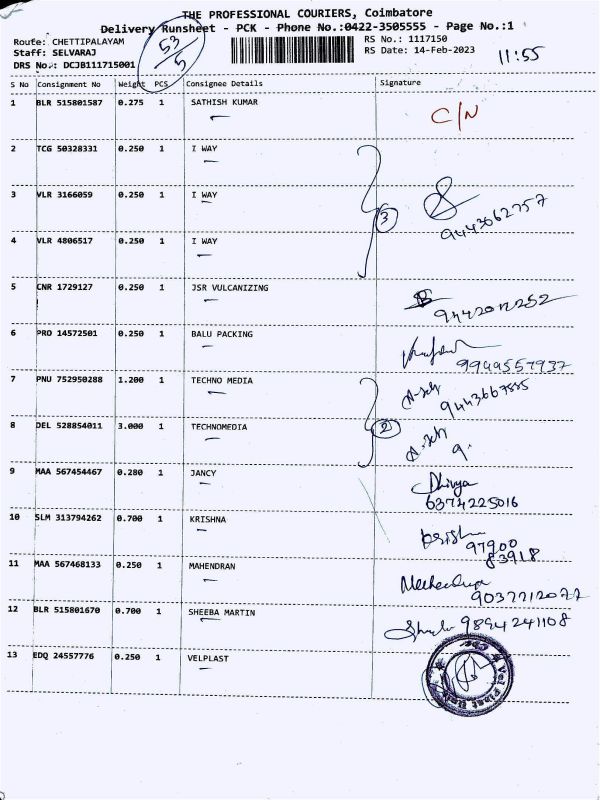 THE PROFESSIONAL COURIERS, Coimbatore
Delivery Runsheet - PCK - Phone No.:0422-3505555 - Page No.:1
Route: CHETTIPALAYAM
Staff: SELVARAJ
DRS No.: DCJB111715001
53/5
RS No.: 1117150
RS Date: 14-Feb-2023
11:55
S No Consignment No Weight PCS Consignee Details Signature
1 BLR 515801587 0.275 1 SATHISH KUMAR C/N
2 TCG 50328331 0.250 1 I WAY
3 VLR 3166059 0.250 1 I WAY 3 9443062757
4 VLR 4806517 0.250 1 I WAY
5 CNR 1729127 0.250 1 JSR VULCANIZING
6 PRO 14572501 0.250 1 BALU PACKING
7 PNU 752950288 1.200 1 TECHNO MEDIA
8 DEL 528854011 3.000 1 TECHNOMEDIA 2 9.
9 MAA 567454467 0.280 1 JANCY Dhivya
6374225016
10 SLM 313794262 0.700 1 KRISHNA
97900
83918
11 MAA 567468133 0.250 1 MAHENDRAN
12 BLR 515801670 0.700 1 SHEEBA MARTIN 9894241108
13 EDQ 24557776 0.250 1 VELPLAST